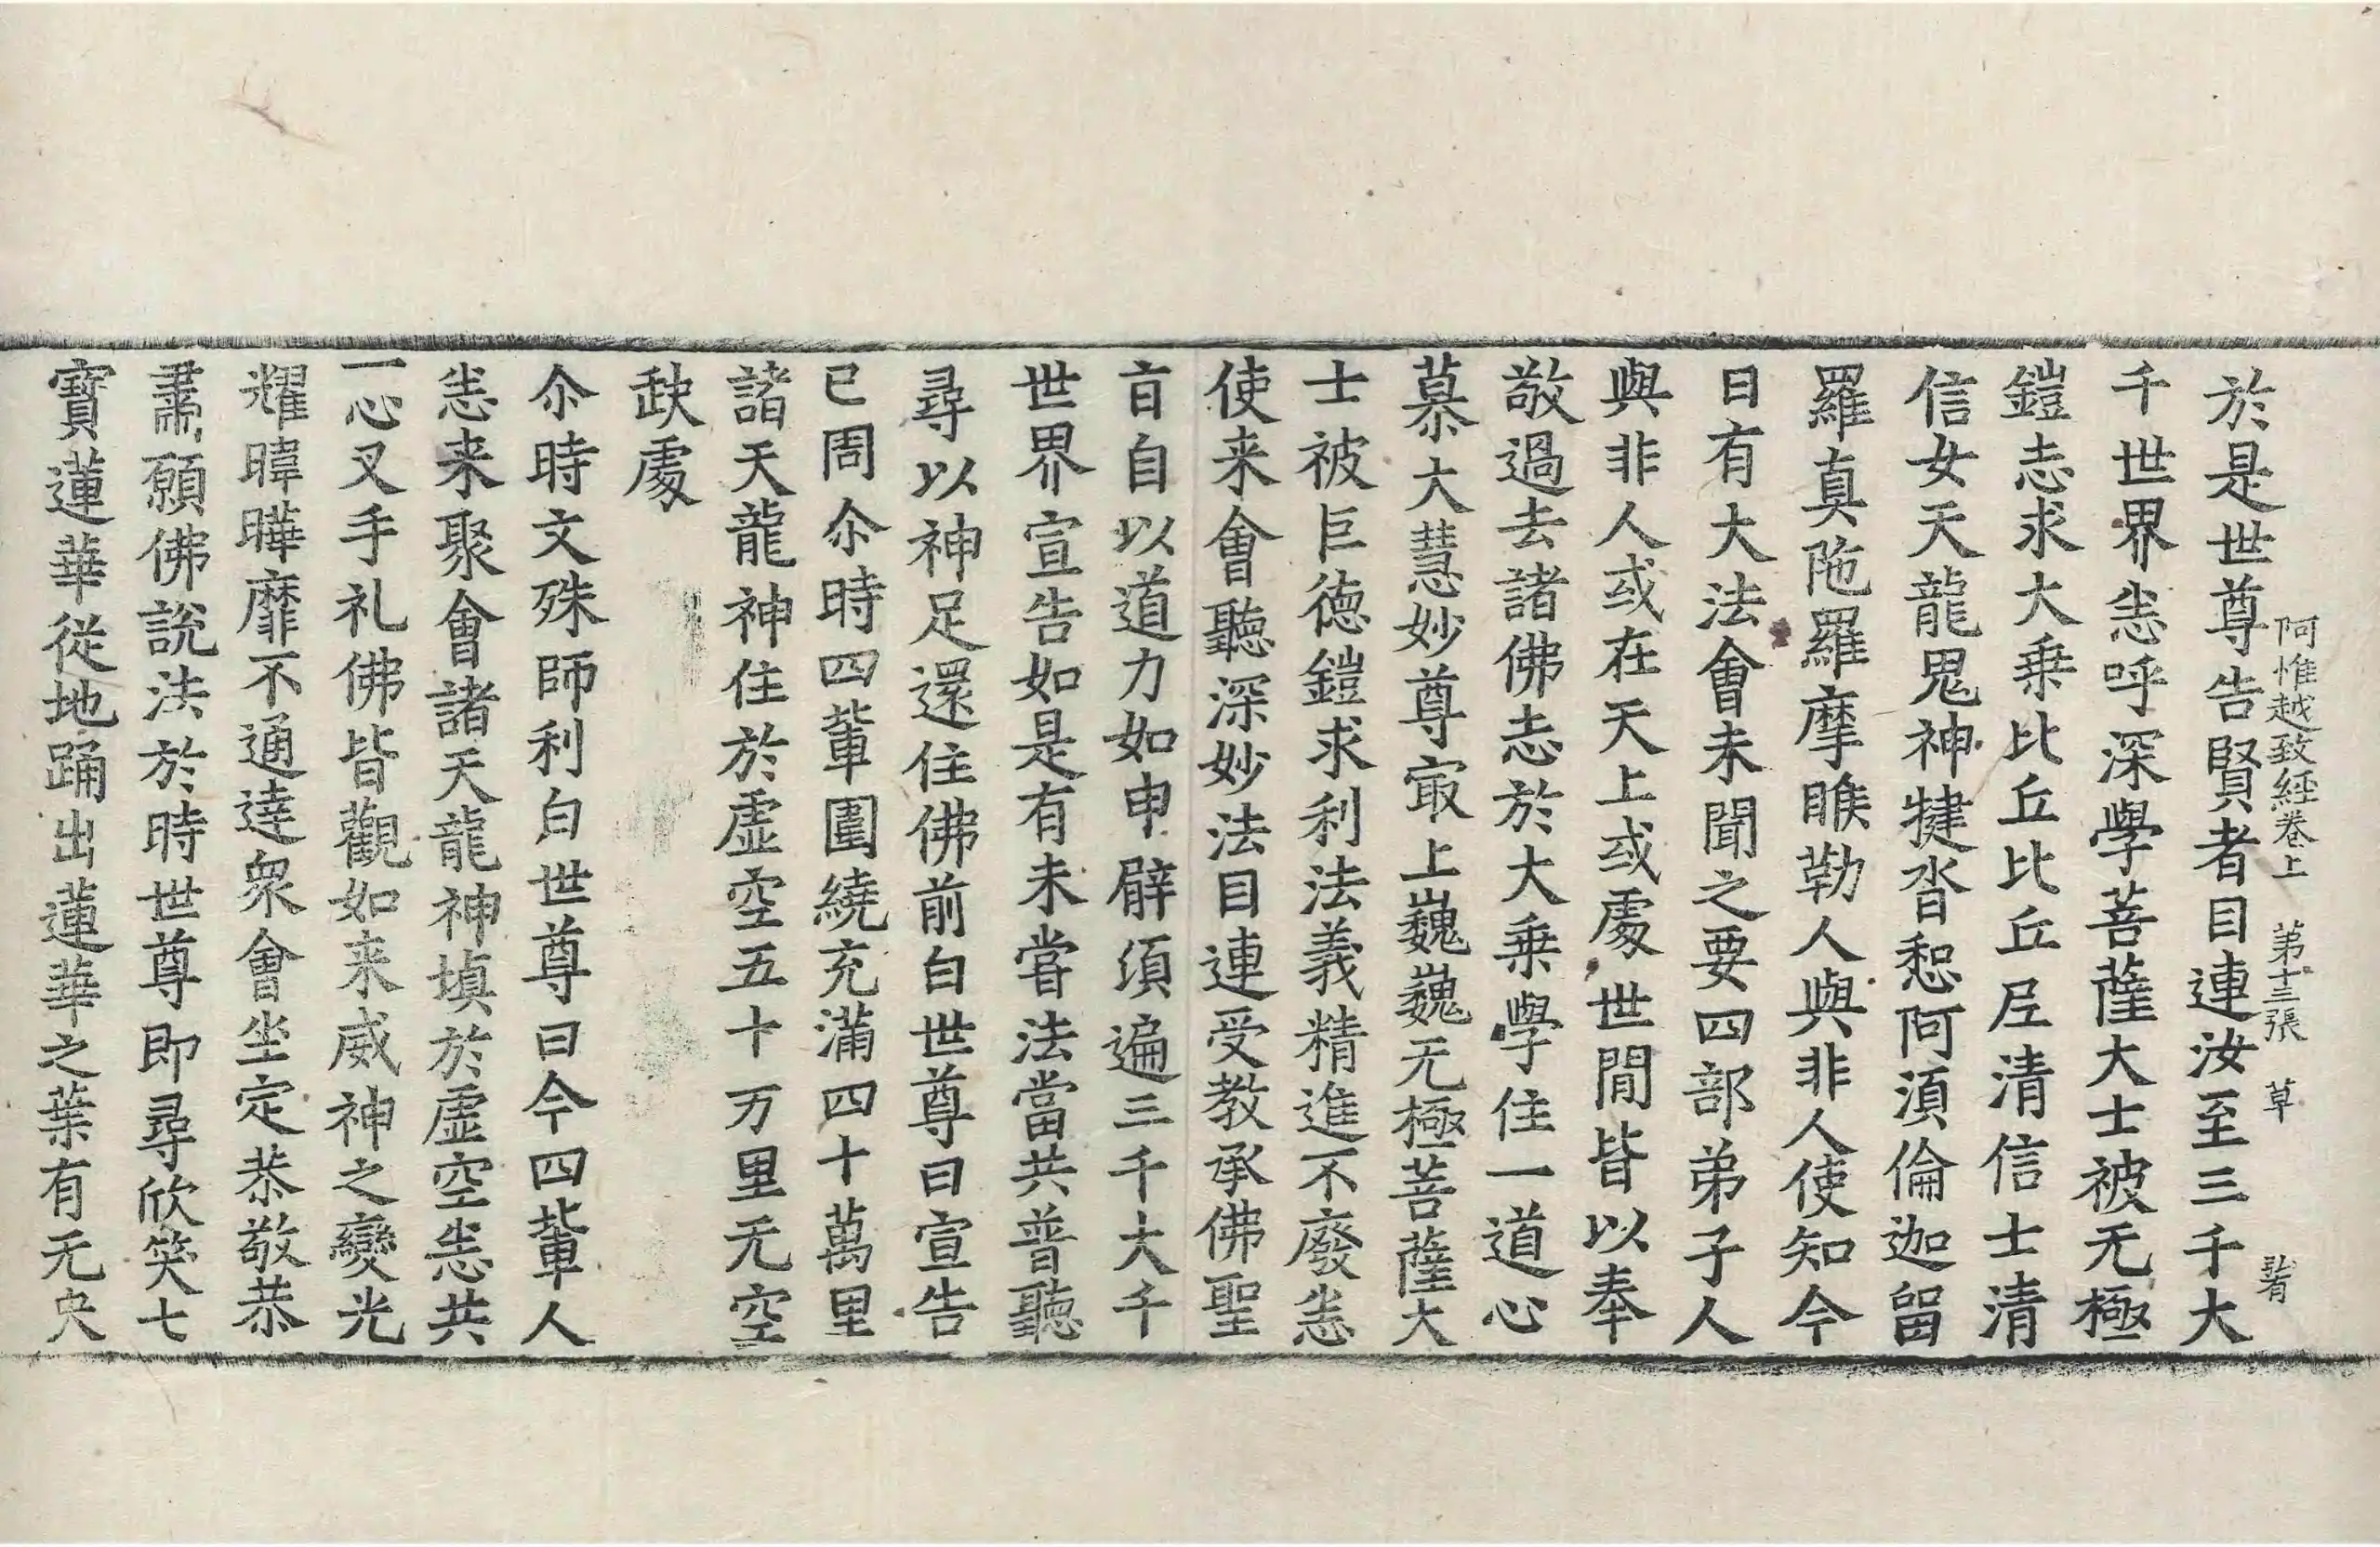 阿惟越致經卷上　第十三張　草
於是世尊告賢者目連汝至三千大
千世界恙呼深學菩薩大士被无極
鎧志求大乗比丘比丘尼清信士清
信女天龍鬼神揵沓惒阿湏倫迦留
羅真陁羅摩睺勒人與非人使知今
日有大法會未聞之要四部弟子人
與非人或在天上或處世閒皆以奉
敬過去諸佛志於大乗學住一道心
慕大慧妙尊㝡上巍巍无極菩薩大
士被巨德鎧求利法義精進不廢恙
使来會聽深妙法目連受教承佛聖
旨自以道力如申臂須遍三千大千
世界宣告如是有未嘗法當共普聽
尋以神足還住佛前白世尊曰宣告
已周尒時四輩圍繞充滿四十萬里
諸天龍神住於虛空五十万里无空
缺處
尒時文殊師利白世尊曰今四輩人
恙来聚會諸天龍神填於虛空恙共
一心叉手礼佛皆觀如来威神之變光
耀暐曄靡不通達衆會坐定恭敬恭
肅願佛說法於時世尊即尋欣笑七
寶蓮華從地踊出蓮華之葉有无央